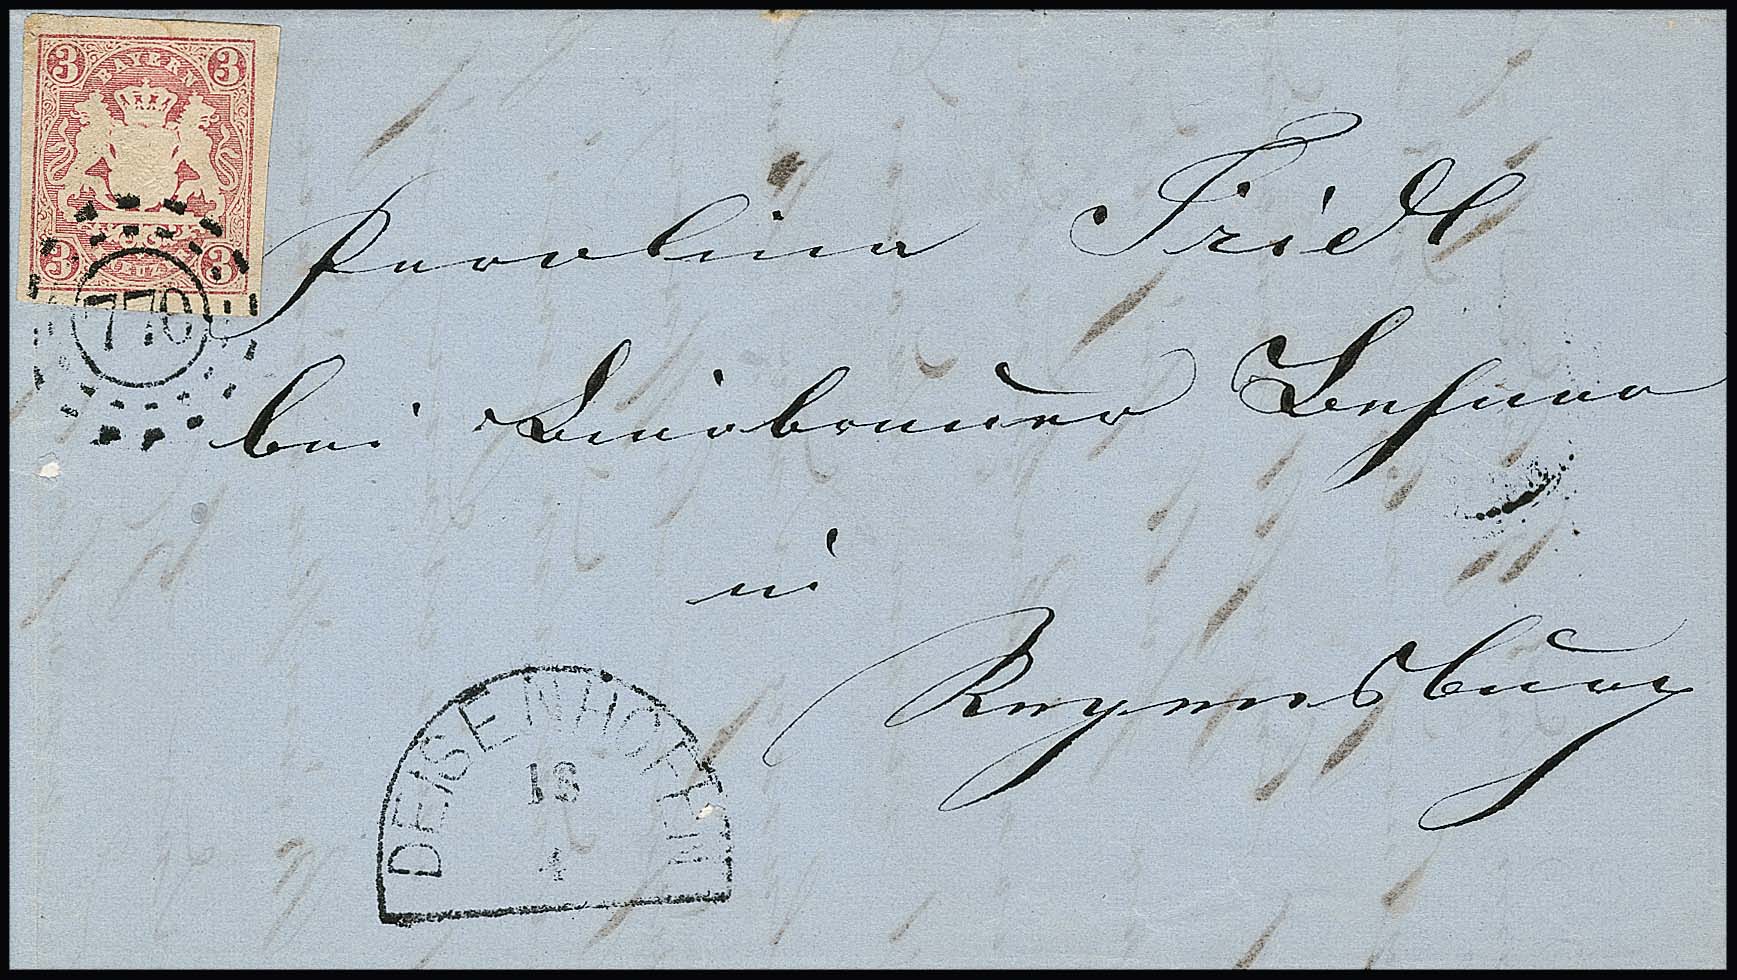 3 BAYERN 3
3 KREUZER 3
770
Karolina Friedl
bei
in
Regensburg
DEISENHOFEN
18
4